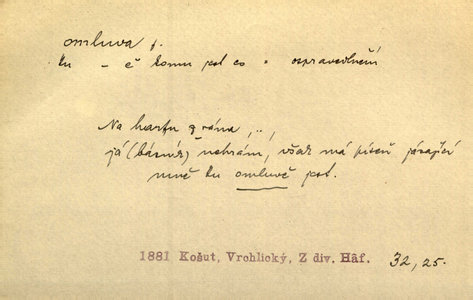 omluva f.
ku – ě komu pět co = ospravedlnění
Na harfu z rána „
já (básník) nehrám, však má píseň jásající
mně ku omluvě pět.
1881 Košut, Vrchlický, Z div. Háf. 32, 25.